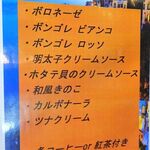 ・ボロネーゼ
・ボンゴレ ビアンコ
・ボンゴレ ロッソ
・明太子クリームソース
・ホタテ貝のクリームソース
・和風きのこ
・カルボナーラ
・ツナクリーム
コーヒーor 紅茶付き